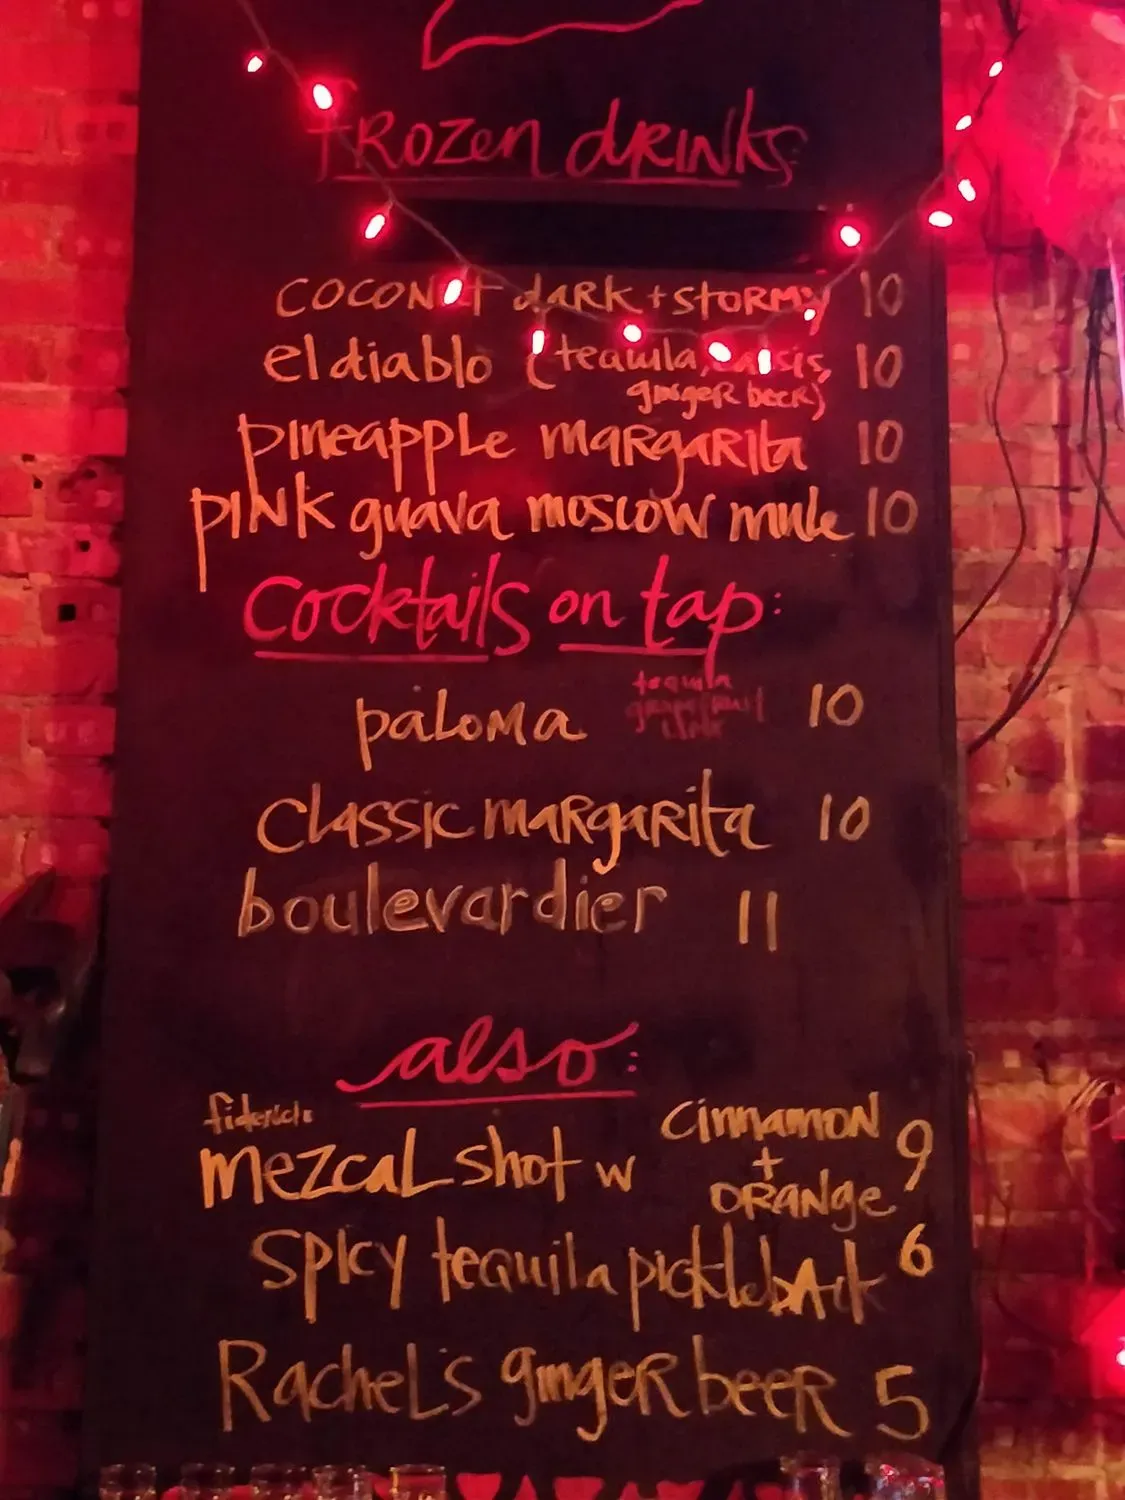 frozen drinks:
coconut dark + stormy 10
el diablo (tequila, cassis, 10
ginger beer)
pineapple margarita 10
pink guava moscow mule 10
Cocktails on tap:
paloma 10
tequila
grapefruit
classic margarita 10
boulevardier 11
also:
mezcal shot w cinnamon + orange 9
spicy tequila pickleback 6
Rachel's ginger beer 5